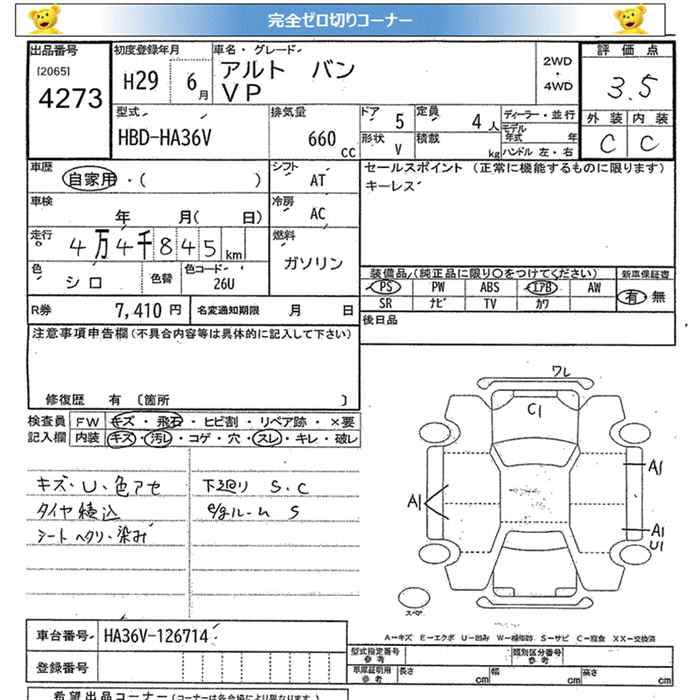 完全ゼロ切りコーナー
出品番号
[2065]
4273
初度登録年月
H29 6月
車名・グレード
アルト バン
VP
2WD
・
4WD
評価点
3.5
外装 内装
C C
型式
HBD-HA36V
排気量
660 cc
ドア 5
形状 V
定員 4人
積載 kg
ディーラー・並行
モデル年式 年
ハンドル 左・右
車歴
自家用・( )
シフト
AT
セールスポイント (正常に機能するものに限ります)
キーレス
車検
年 月( 日)
冷房
AC
走行
4万4千845km
燃料
ガソリン
色
シロ
色替
色コード
26U
装備品(純正品に限り○をつけてください)
PS PW ABS エアB AW
SR ナビ TV カワ
新車保証書
有 無
R券 7,410円
名変通知期限 月 日
後日品
注意事項申告欄(不具合内容等は具体的に記入して下さい)
修復歴 有 [箇所 ]
検査員
記入欄
FW キズ・飛石・ヒビ割・リペア跡・×要
内装 キズ・汚レ・コゲ・穴・スレ・キレ・破レ
キズ・U・色アセ
タイヤ積込
シートヘタリ・染み
下廻り S.C
e/gルーム S
ワレ
C1
A1
A1
A1
U1
スペア
A-キズ E-エクボ U-凹み W-補修跡 S-サビ C-腐食 XX-交換済
車台番号 HA36V-126714
登録番号
型式指定番号
参考
類別区分番号
参考
車庫証明用
参考
長さ cm
幅 cm
高さ cm
希望出品コーナー(コーナーは各会場により異なります)